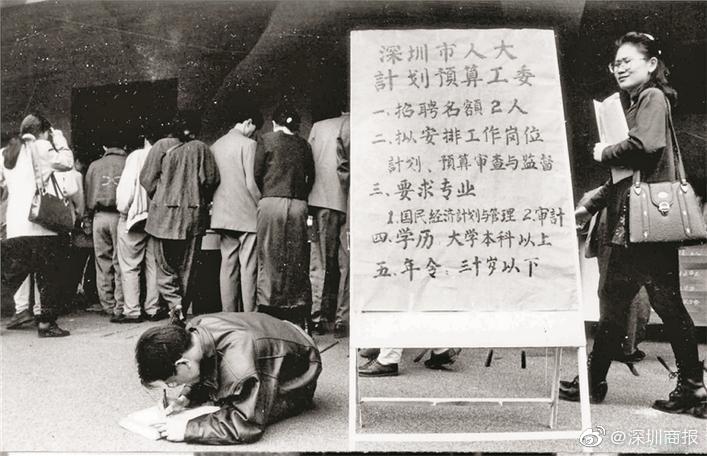 深圳市人大
計划预算工委
一.招聘名額2人
二.拟安排工作岗位
計划、预算審查与监督
三.要求专业
1.国民经济計划与管理 2.审計
四.学历 大学本科以上
五.年令:三十岁以下
@深圳商报